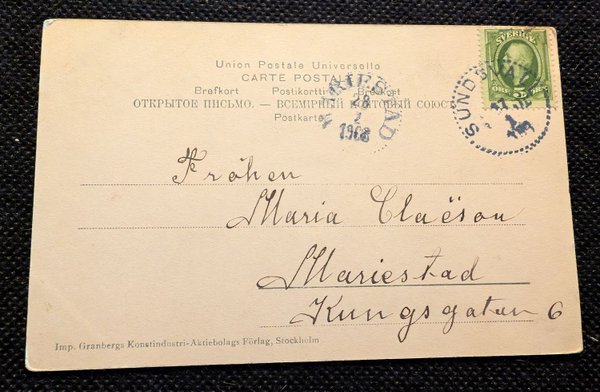 SVERIGE
5
ÖRE
Union Postale Universelle
CARTE POSTALE
Brefkort Postikortti
ОТКРЫТОЕ ПИСЬМО. — ВСЕМІРНЫЙ ПОЧТОВЫЙ СОЮЗЪ
Postkarte
MARIESTAD
28
1908
SUNDSVALL
Fröken
Maria Claëson
Mariestad
Kungsgatan 6
Imp. Granbergs Konstindustri-Aktiebolags Förlag, Stockholm